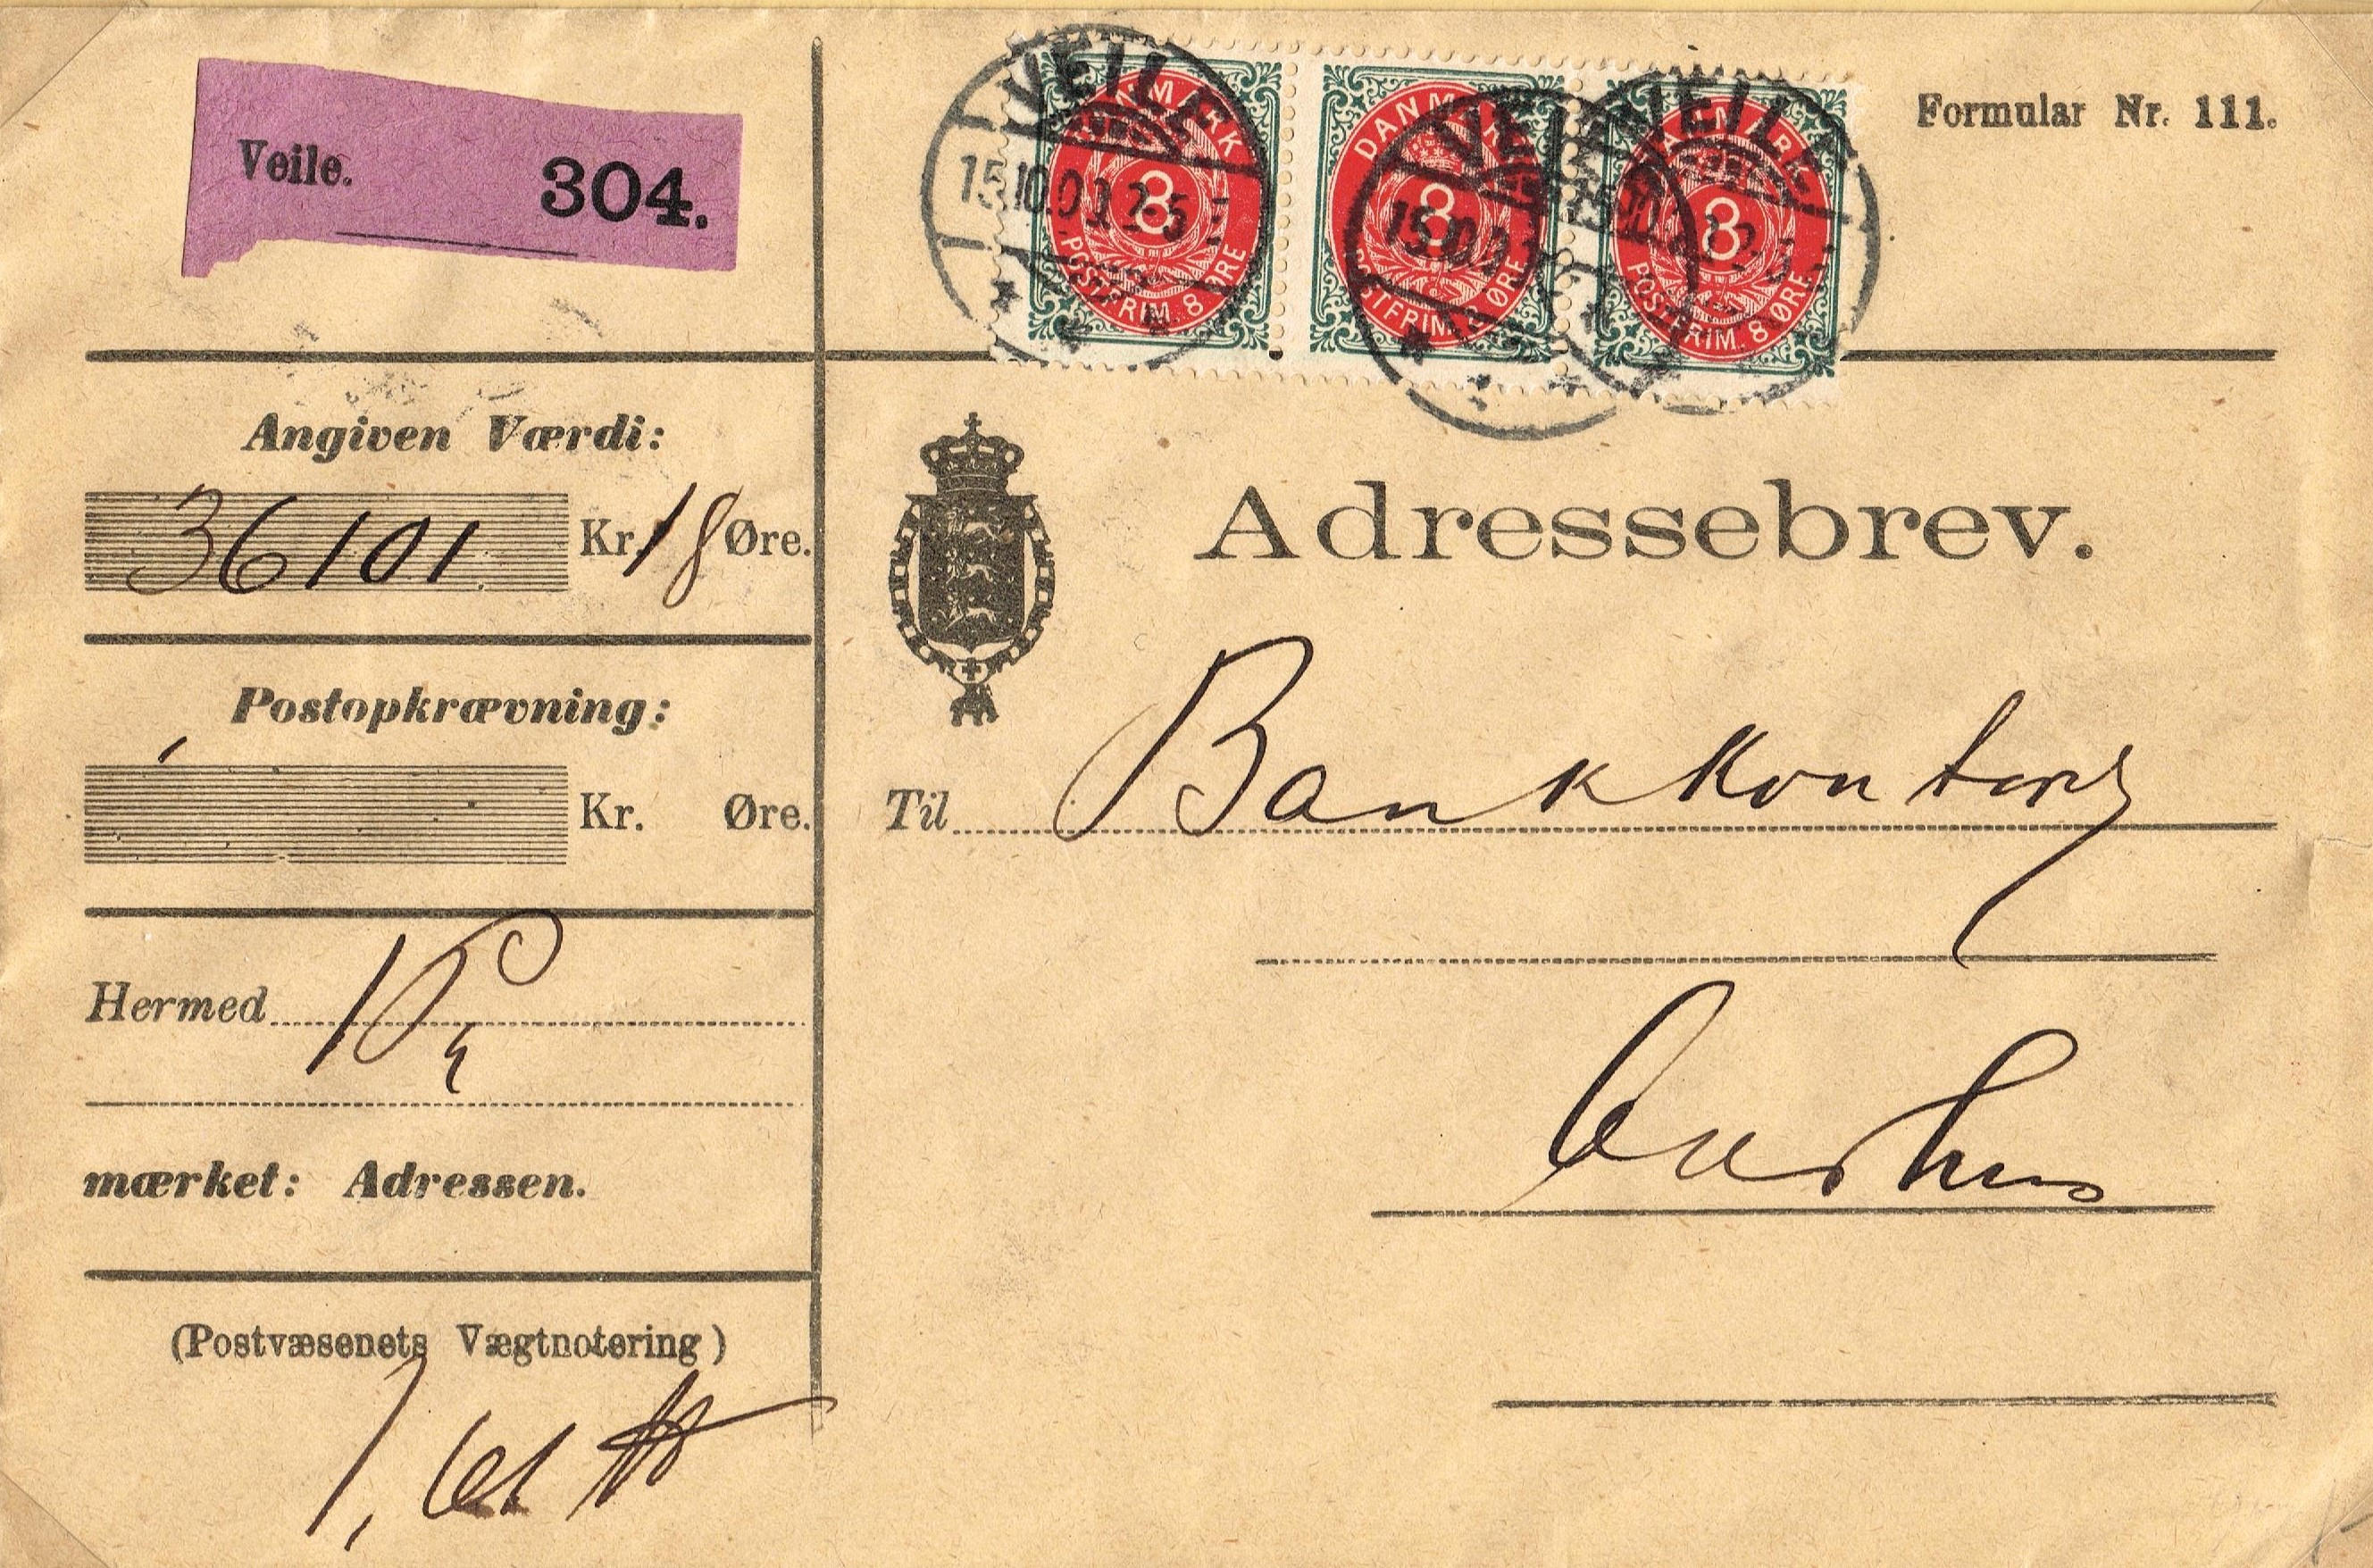 Veile. 304.
VEILE
15.10.00.2-5
DANMARK
8
POSTFRIM. 8 ØRE
VEILE
DANMARK
8
POSTFRIM. 8 ØRE
VEILE
DANMARK
8
POSTFRIM. 8 ØRE
Formular Nr. 111.
Angiven Værdi:
36101 Kr. 18 Øre.
Postopkrævning:
Kr. Øre.
Hermed
mærket: Adressen.
(Postvæsenets Vægtnotering)
Adressebrev.
Til Bankkontoret
Aarhus